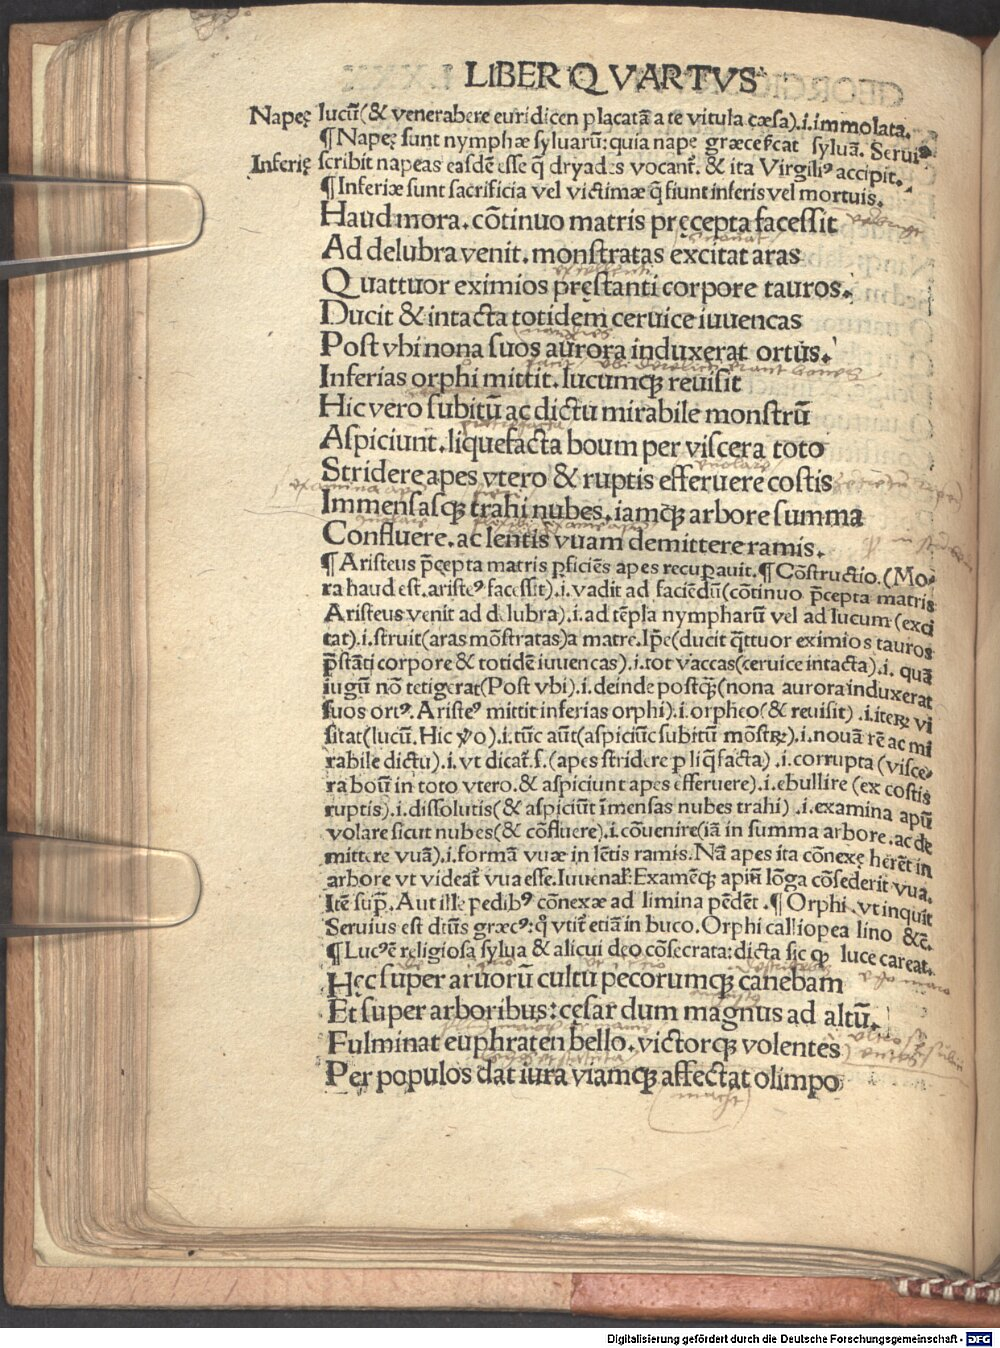 LIBER QVARTVS
Napeę lucū(& venerabere euridicen placatā a te vitula cæsa).i.immolata.
¶Napeę sunt nymphæ syluarū: quia nape græce vocat syluā. Serui⁹
Inferię scribit napeas easdē esse q̄ dryades vocant̄. & ita Virgili⁹ accipit.
¶Inferiæ sunt sacrificia vel victimæ q̄ fiunt inferis vel mortuis.
Haud mora. cōtinuo matris pręcepta facessit
Ad delubra venit. monstratas excitat aras
Quattuor eximios pręstanti corpore tauros.
Ducit & intacta totidem ceruice iuuencas
Post vbi nona suos aurora induxerat ortus.
Inferias orphi mittit. lucumqꝫ reuisit
Hic vero subitū ac dictu mirabile monstrū
Aspiciunt. liquefacta boum per viscera toto
Stridere apes vtero & ruptis efferuere costis
Immensasqꝫ trahi nubes. iamqꝫ arbore summa
Confluere. ac lentis vuam demittere ramis.
¶Aristeus p̄cepta matris ꝑficiēs apes recuꝑauit. ¶Cōstructio.(Mo-
ra haud est. ariste⁹ facessit).i.vadit ad faciēdū(cōtinuo p̄cepta matris
Aristeus venit ad delubra).i.ad tēpla nympharū vel ad lucum(exci
tat).i.struit(aras mōstratas)a matre. Ip̄e(ducit q̄ttuor eximios tauros
p̄stāti corpore & totidē iuuencas).i.tot vaccas(ceruice intacta).i. quā
iugū nō tetigerat(Post vbi).i.deinde postq̄(nona aurora induxerat
suos ort⁹. Ariste⁹ mittit inferias orphi).i.orpheo(& reuisit).i.iterꝝ vi
sitat(lucū. Hic v̄o).i.tūc aūt(aspiciūt subitū mōstrꝝ).i.nouā rē ac mi
rabile dictu).i.vt dicat̄.s.(apes stridere ꝑ liq̄facta).i.corrupta(visce-
ra boū in toto vtero.& aspiciunt apes efferuere).i.ebullire(ex costis
ruptis).i.dissolutis(& aspiciūt īmensas nubes trahi).i.examina apū
volare sicut nubes(& cōfluere).i.cōuenire(iā in summa arbore.ac de
mittere vuā).i.formā vuæ in lētis ramis. Nā apes ita cōnexę herēt in
arbore vt videat̄ vua esse. Iuuenal': Examēqꝫ apiū lōga cōsederit vua.
Itē sup̄. Aut ille pedib⁹ cōnexæ ad limina pēdēt. ¶Orphi. vt inquit
Seruius est dt̄us græc⁹: q̄ vtit̄ etiā in buco. Orphi calliopea lino &c̄.
¶Luc⁹ ē religiosa sylua & alicui deo cōsecrata: dicta sic ꝙ luce careat.
Hęc super aruorū cultu pecorumqꝫ canebam
Et super arboribus: cęsar dum magnus ad altū.
Fulminat euphraten bello. victorqꝫ volentes
Per populos dat iura viamqꝫ affectat olimpo
Digitalisierung gefördert durch die Deutsche Forschungsgemeinschaft - DFG